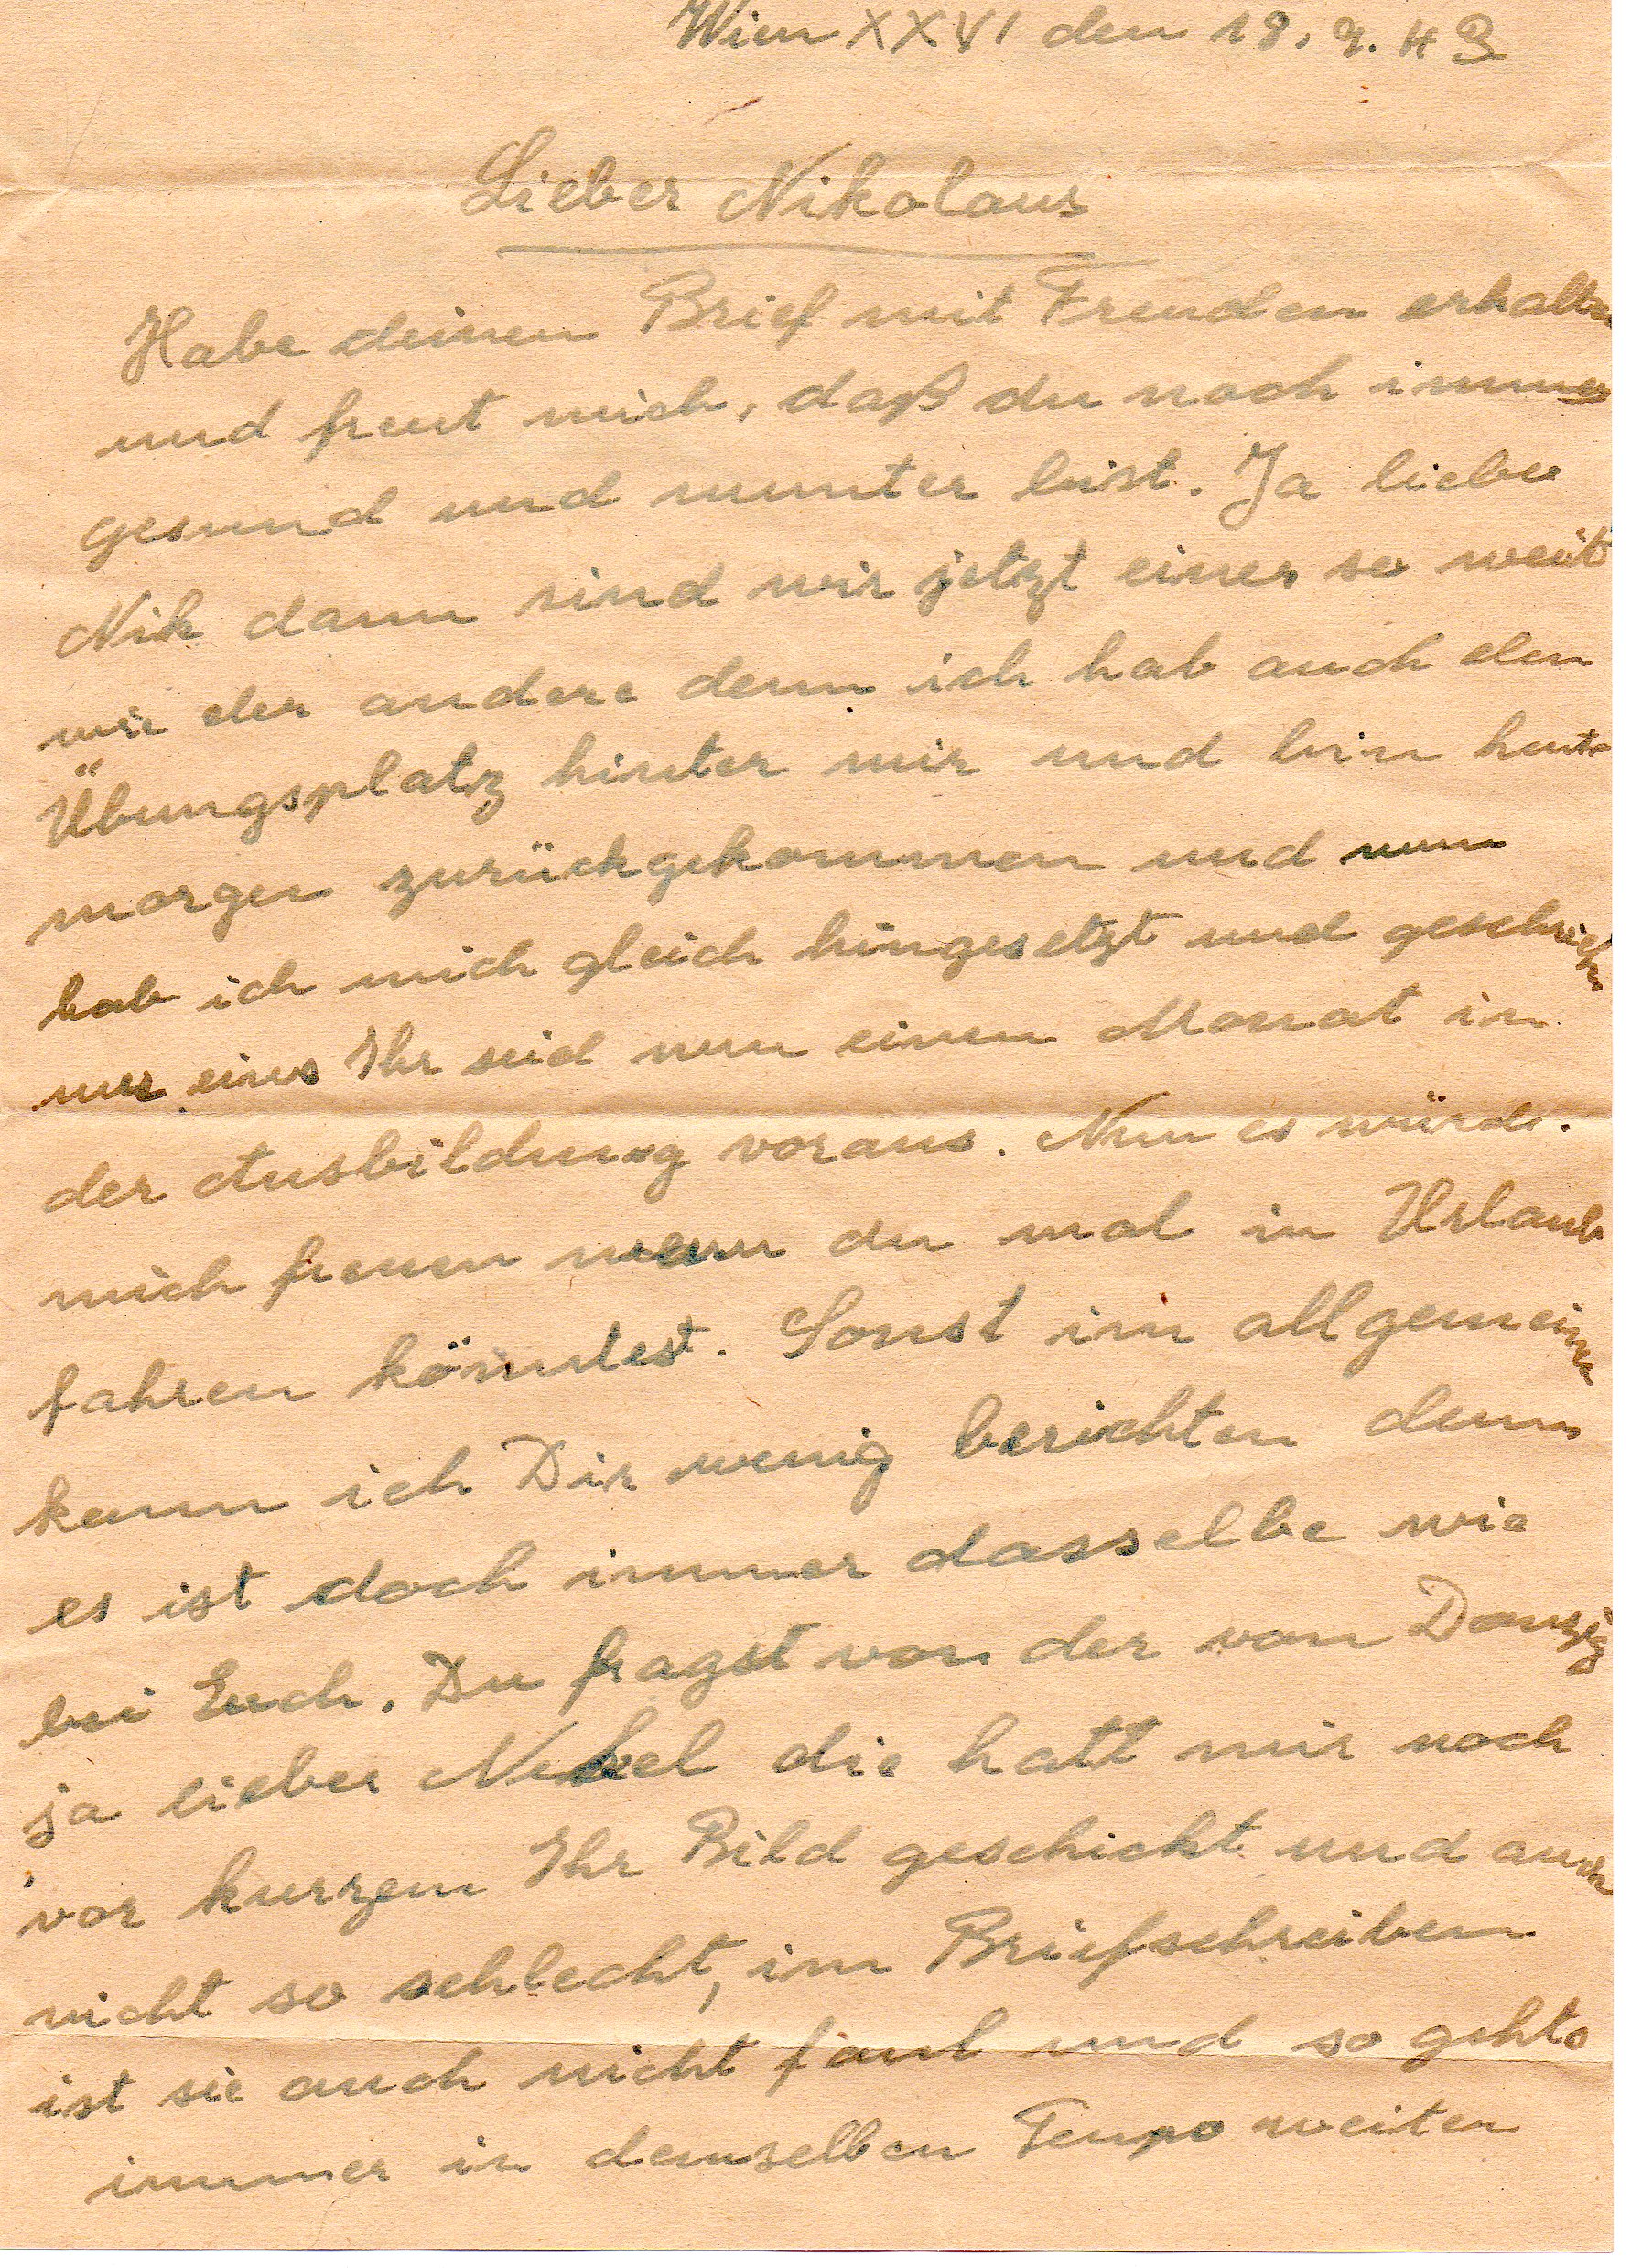 Wien XXVI den 18. 9. 43
Lieber Nikolaus
Habe deinen Brief mit Freuden erhalten
und freut mich, daß du noch immer
gesund und munter bist. Ja lieber
Nik dann sind wir jetzt einer so weit
wie der andere denn ich hab auch den
Übungsplatz hinter mir und bin heute
morgen zurückgekommen und nun
hab ich mich gleich hingesetzt und geschrieb.
nur eins Ihr seid nun einen Monat in
der Ausbildung voraus. Nun es würde
mich freuen wenn du mal in Urlaub
fahren könntest. Sonst im allgemeinen
kann ich Dir wenig berichten denn
es ist doch immer dasselbe wie
bei Euch. Du fragst von der von Danzig
ja lieber die hatt mir noch
vor kurzem Ihr Bild geschickt und auch
nicht so schlecht, im Briefschreiben
ist sie auch nicht faul und so gehts
immer in demselben Tempo weiter